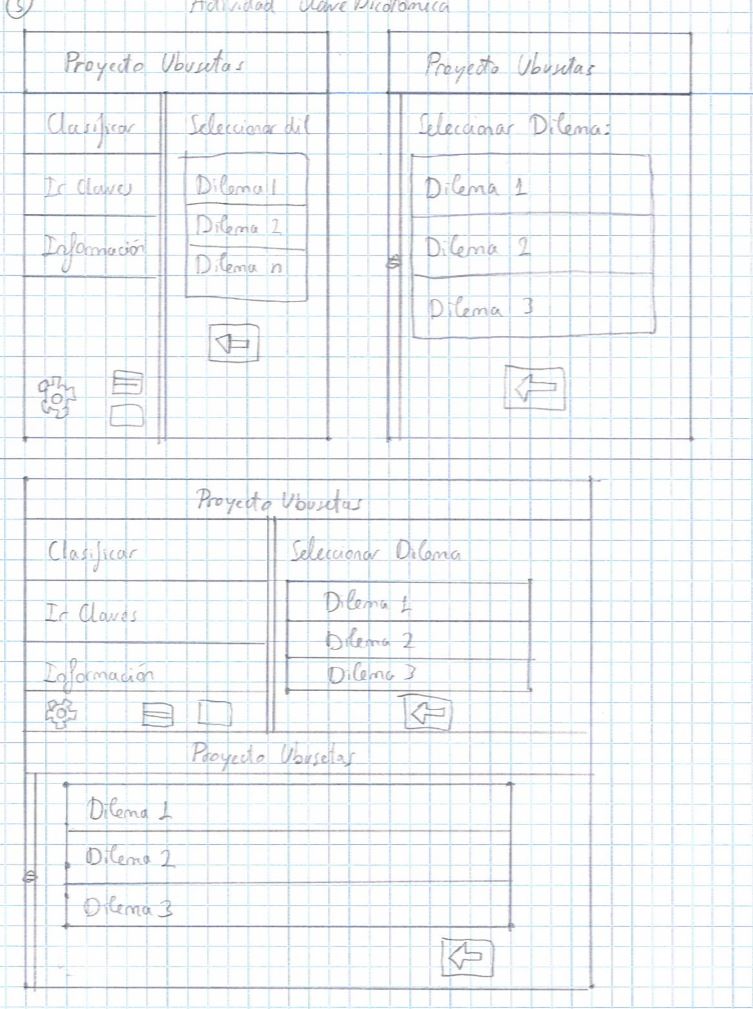 5
Actividad Clave Dicotómica
Proyecto Ubusetas
Clasificar
Ir Claves
Información
Seleccionar dil
Dilema 1
Dilema 2
Dilema n
Proyecto Ubusetas
Seleccionar Dilema:
Dilema 1
Dilema 2
Dilema 3
Proyecto Ubusetas
Clasificar
Ir Claves
Información
Seleccionar Dilema
Dilema 1
Dilema 2
Dilema 3
Proyecto Ubusetas
Dilema 1
Dilema 2
Dilema 3